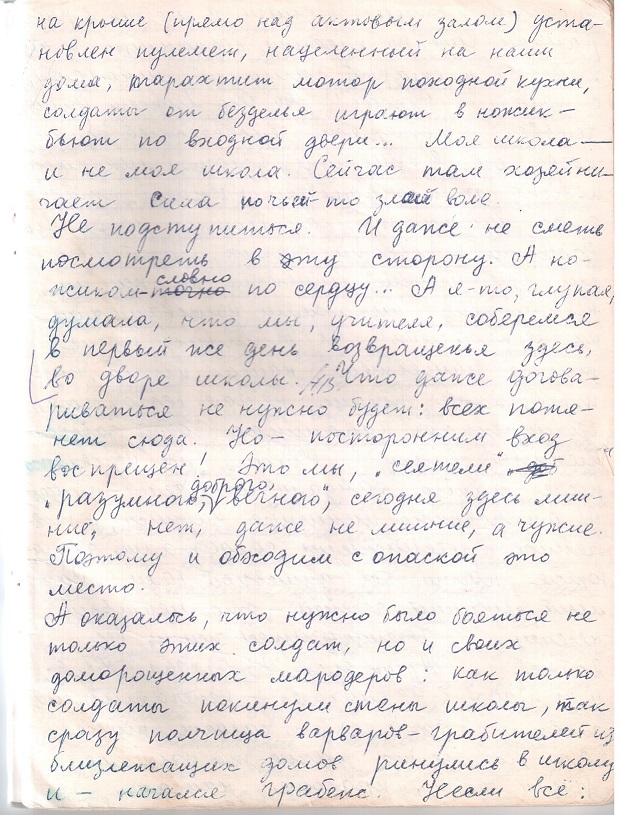 на крыше (прямо над актовым залом) уста-
новлен пулемет, нацеленный на наши
дома, тарахтит мотор походной кухни,
солдаты от безделья играют в ножик –
бьют по входной двери... Моя школа —
и не моя школа. Сейчас там хозяйни-
чает сила по чьей-то злой воле.
Не подступиться. И даже не сметь
посмотреть в эту сторону. А но-
жиком словно точно по сердцу... А я-то, глупая,
думала, что мы, учителя, соберемся
в первый же день возвращенья здесь,
во дворе школы. Что даже догова-
риваться не нужно будет: всех потя-
нет сюда. Но – посторонним вход
воспрещен! Это мы, „сеятели"
„разумного, доброго, вечного", сегодня здесь лиш-
ние, нет, даже не лишние, а чужие.
Поэтому и обходим с опаской это
место.
А оказалось, что нужно было бояться не
только этих солдат, но и своих
доморощенных мародеров: как только
солдаты покинули стены школы, так
сразу полчища варваров-грабителей из
близлежащих домов ринулись в школу
и – начался грабеж. Несли всё: